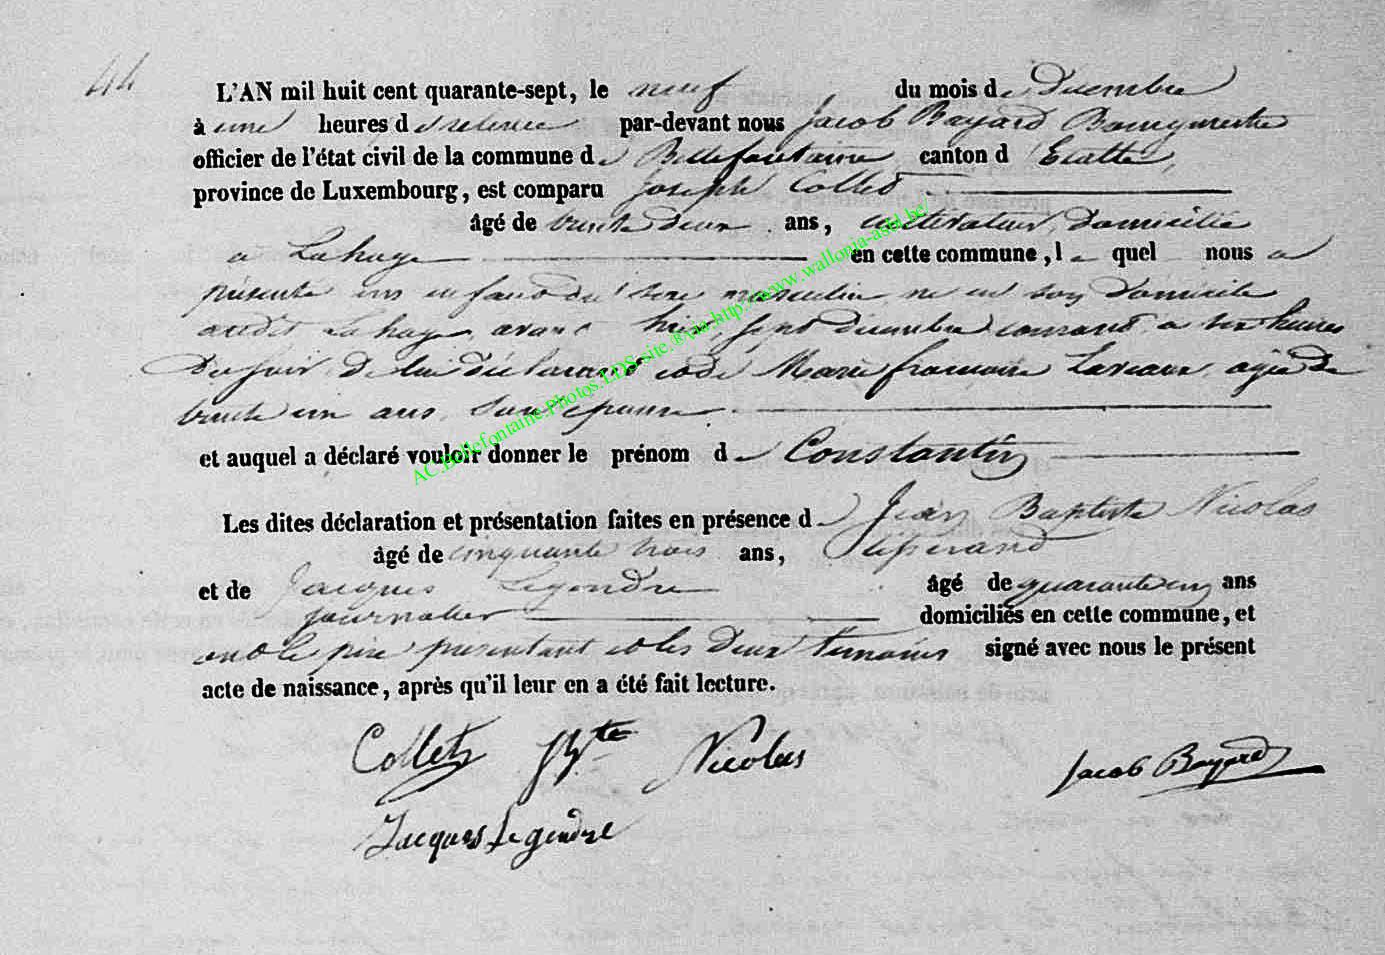 44
L'AN mil huit cent quarante-sept, le neuf du mois de Décembre
à une heures de relevée par-devant nous Jacob Bayard Bourgmestre
officier de l'état civil de la commune de Bellefontaine canton d'Etalle,
province de Luxembourg, est comparu Joseph Collet
âgé de trente deux ans, cultivateur, domicilié
a Lahage en cette commune, le quel nous a
présenté un enfant du sexe masculin né en son domicile
audit Lahage, avant hier, sept décembre courant a six heures
Du soir, de lui déclarant et de Marie françoise Laviaux, agée de
trente un ans, son épouse
et auquel a déclaré vouloir donner le prénom de Constantin
Les dites déclaration et présentation faites en présence de Jean Baptiste Nicolas
âgé de cinquante trois ans,
et de Jacques Legendre âgé de quarante un ans
journalier domiciliés en cette commune, et
ont le père présentant et les deux témoins signé avec nous le présent
acte de naissance, après qu'il leur en a été fait lecture.
Collet JBte Nicolas Jacob Bayard
Jacques Legendre
AC.Bellefontaine-Photos.LDS-site.® via http://www.wallonia-asbl.be/